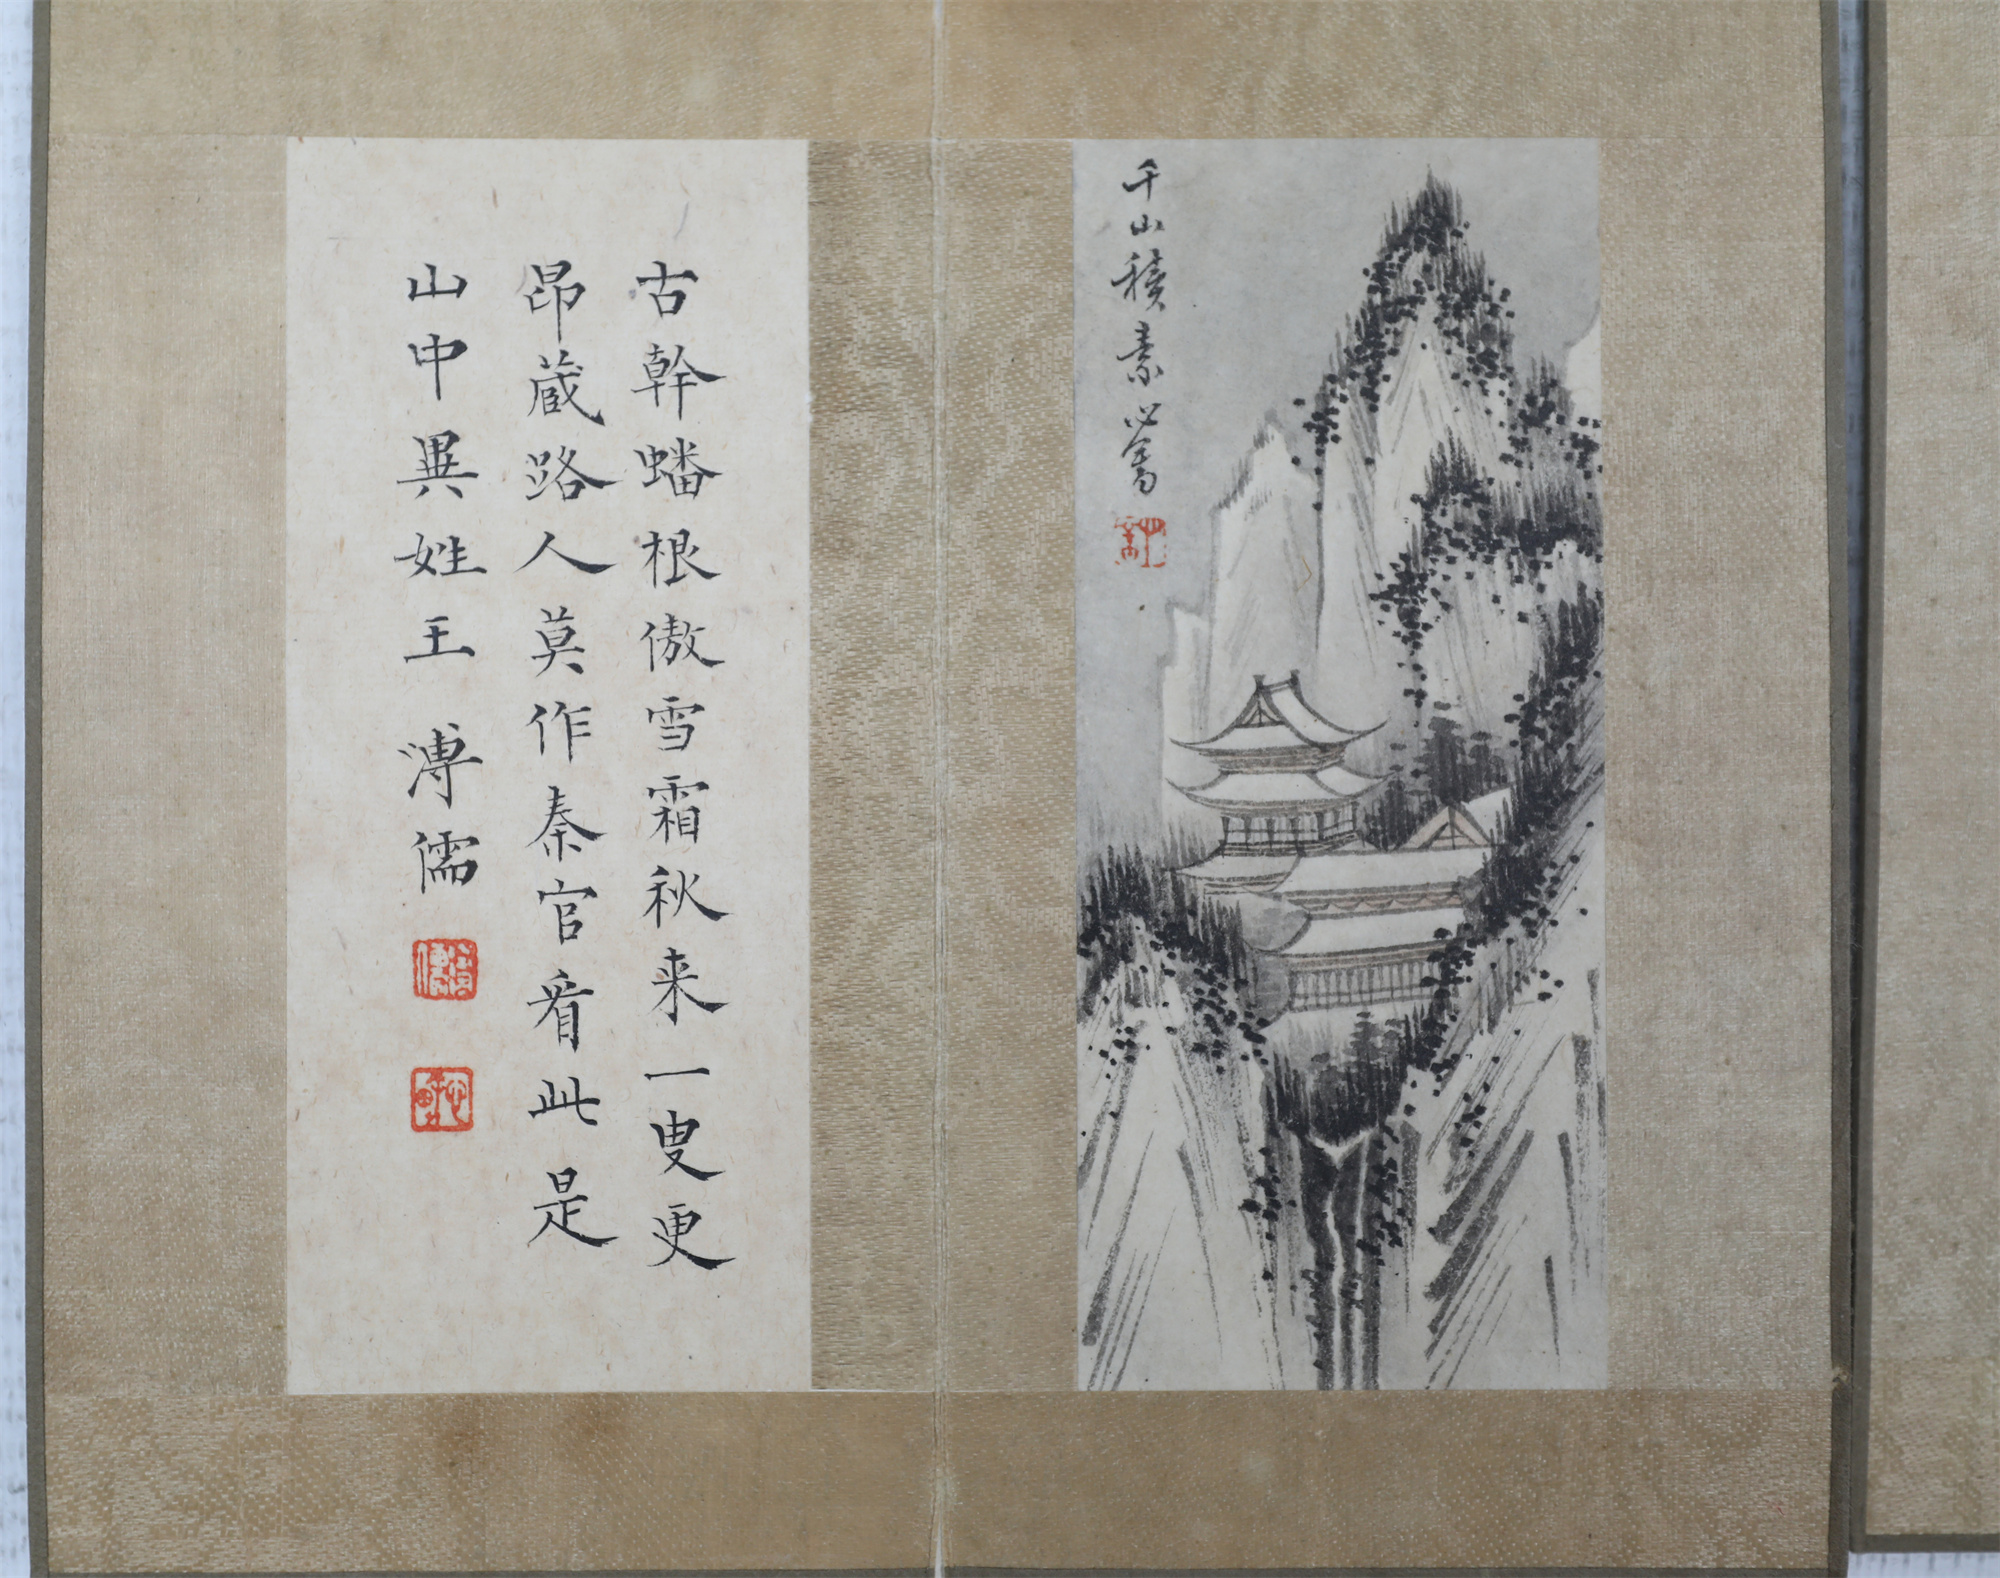 千山積素心畬
古幹蟠根傲雪霜秋来一叟更
昂蔵路人莫作秦官看此是
山中異姓王 溥儒